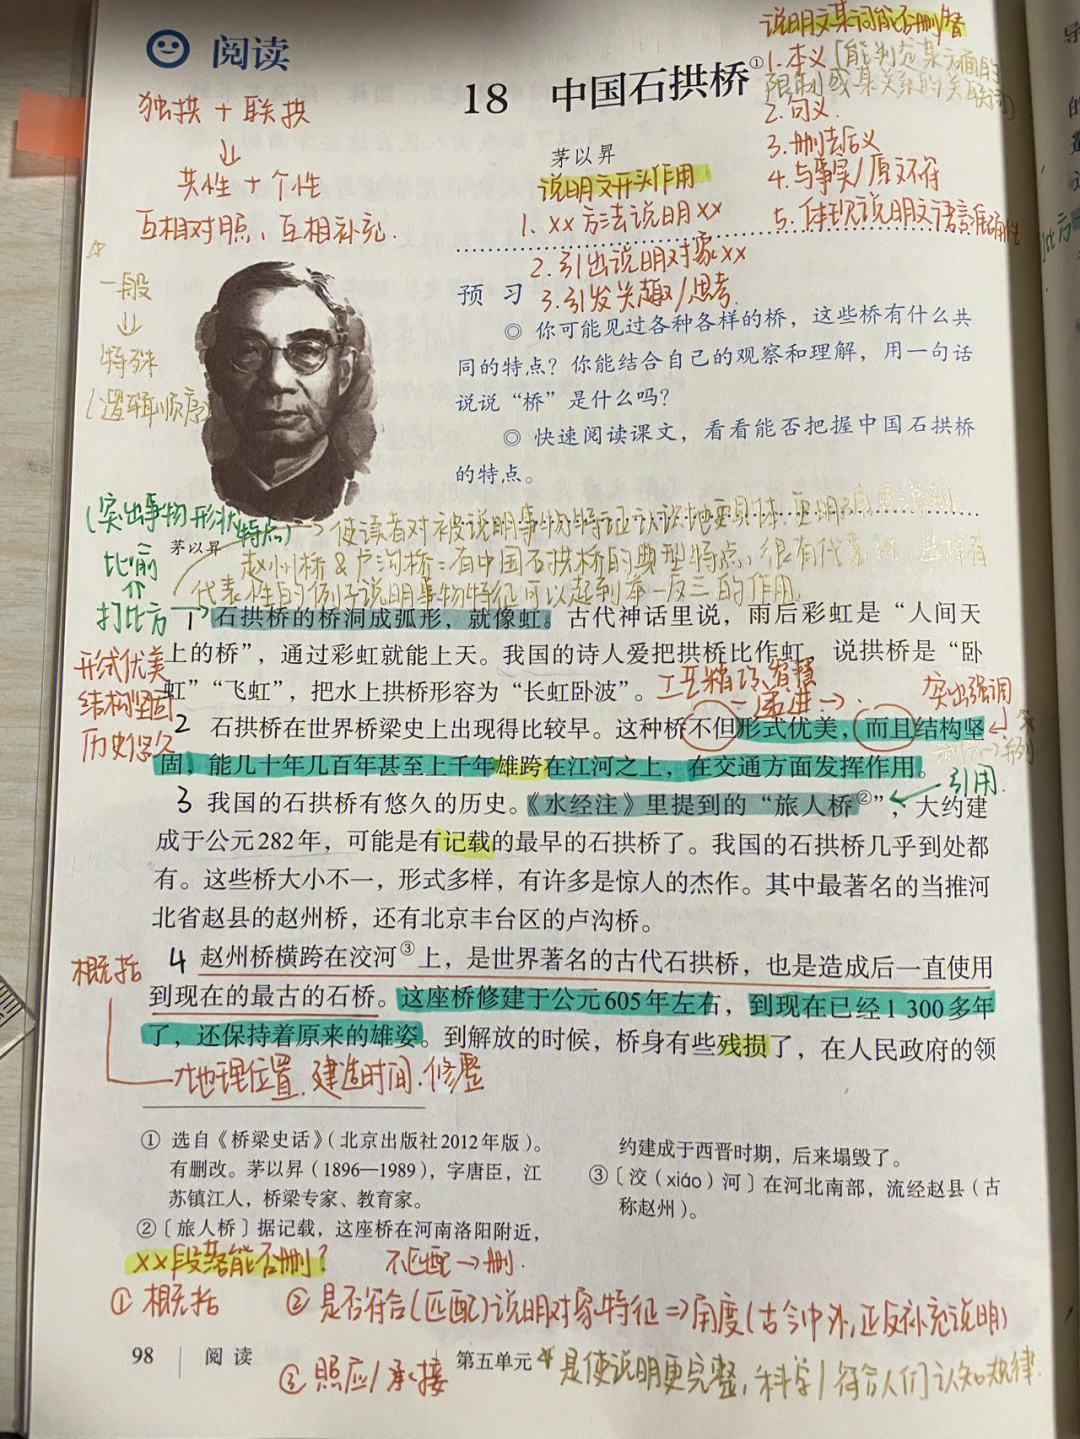 阅读
说明文某词能否删/替
18 中国石拱桥①
1.本义[能判定某方面的
限制]或某关系的关联词
2.句义
3.删去后义
4.与事实/原文不符
5.体现说明文语言准确性
独拱+联拱
↓
共性+个性
互相对照、互相补充.
茅以昇
说明文开头作用
1.xx方法说明xx
2.引出说明对象xx
3.引发兴趣/思考.
一般
↓
特殊
(逻辑顺序)
预 习
◎ 你可能见过各种各样的桥，这些桥有什么共
同的特点？你能结合自己的观察和理解，用一句话
说说“桥”是什么吗？
◎ 快速阅读课文，看看能否把握中国石拱桥
的特点。
打比方
(突出事物形状特点)
茅以昇
比喻
⇑
打比方
→使读者对被说明事物特征认识地更具体
赵州桥&卢沟桥:有中国石拱桥的典型特点、很有代表性
代表性的例子说明事物特征可以起到举一反三的作用
1 石拱桥的桥洞成弧形，就像虹。古代神话里说，雨后彩虹是“人间天
上的桥”，通过彩虹就能上天。我国的诗人爱把拱桥比作虹，说拱桥是“卧
虹”“飞虹”，把水上拱桥形容为“长虹卧波”。
形式优美
结构坚固
历史悠久
工艺精巧、智慧
递进→
突出强调
2 石拱桥在世界桥梁史上出现得比较早。这种桥不但形式优美，而且结构坚
固，能几十年几百年甚至上千年雄跨在江河之上，在交通方面发挥作用。
引用
3 我国的石拱桥有悠久的历史。《水经注》里提到的“旅人桥②”，大约建
成于公元282年，可能是有记载的最早的石拱桥了。我国的石拱桥几乎到处都
有。这些桥大小不一，形式多样，有许多是惊人的杰作。其中最著名的当推河
北省赵县的赵州桥，还有北京丰台区的卢沟桥。
概括
4 赵州桥横跨在洨河③上，是世界著名的古代石拱桥，也是造成后一直使用
到现在的最古的石桥。这座桥修建于公元605年左右，到现在已经1 300多年
了，还保持着原来的雄姿。到解放的时候，桥身有些残损了，在人民政府的领
地理位置、建造时间、修整
① 选自《桥梁史话》（北京出版社2012年版）。
有删改。茅以昇（1896—1989），字唐臣，江
苏镇江人，桥梁专家、教育家。
②〔旅人桥〕据记载，这座桥在河南洛阳附近，
约建成于西晋时期，后来塌毁了。
③〔洨（xiáo）河〕在河北南部，流经赵县（古
称赵州）。
xx段落能否删? 不匹配→删.
① 概括 ② 是否符合(匹配)说明对象特征⇒角度(古今中外,正反补充说明)
③ 照应/承接
是使说明更完整,科学/符合人们认知规律.
98 阅 读 第五单元